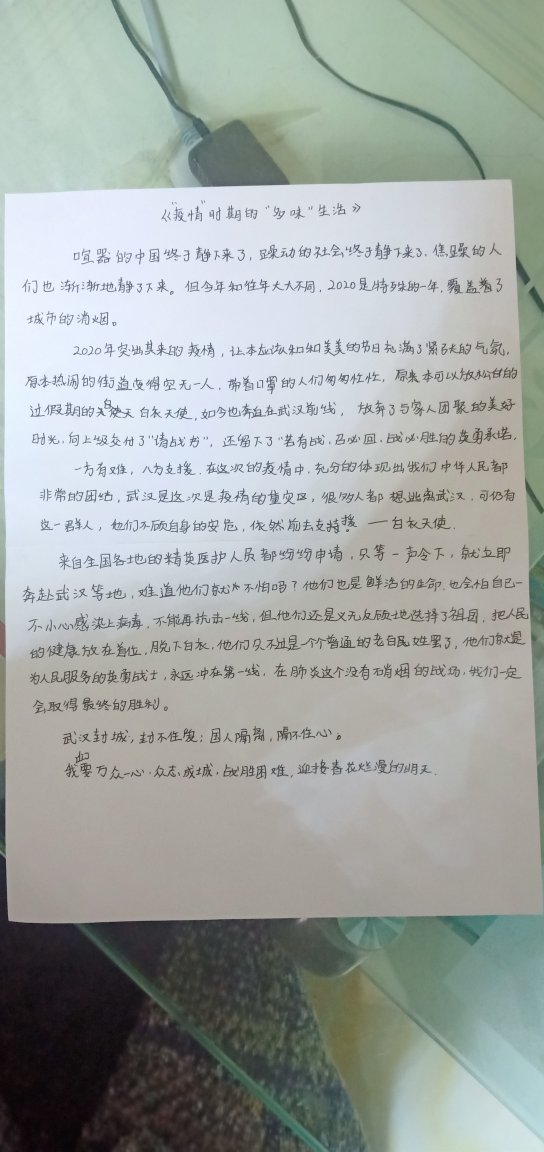 《"疫情"时期的"多味"生活》
喧嚣的中国终于静下来了,躁动的社会终于静下来了,焦躁的人
们也渐渐地静了下来。但今年和往年大大不同,2020是特殊的一年,覆盖着了
城市的消烟。
2020年突出其来的疫情,让本应该和和美美的节日充满了紧张的气氛,
原本热闹的街道变得空无一人,带着口罩的人们匆匆忙忙,原来本可以放松自的
过假期的白衣天使,如今也奔赴在武汉前线,放弃了与家人团聚的美好
时光,向上级交付了"请战书",还留下了"若有战,召必回,战必胜的英勇承诺。
一方有难,八方支援.在这次的疫情中,充分的体现出我们中华人民都
非常的团结,武汉是这次是疫情的重灾区,很多人都想逃离武汉,可仍有
这一群人,他们不顾自身的安危,依然前去支持援——白衣天使.
来自全国各地的精英医护人员都纷纷申请,只等一声令下,就立即
奔赴武汉等地,难道他们就不怕吗?他们也是鲜活的生命.也会怕自己一
不小心感染上病毒,不能再抗击一线,但他们还是义无反顾地选择了祖国,把人民
的健康放在首位,脱下白衣,他们只不过是一个个普通的老百民姓罢了,他们就是
为人民服务的英勇战士,永远冲在第一线.在肺炎这个没有硝烟的战场,我们一定
会取得最终的胜利。
武汉封城,封不住爱;国人隔离,隔不住心。
我们要万众一心.众志成城.战胜困难,迎接春花烂漫的明天.